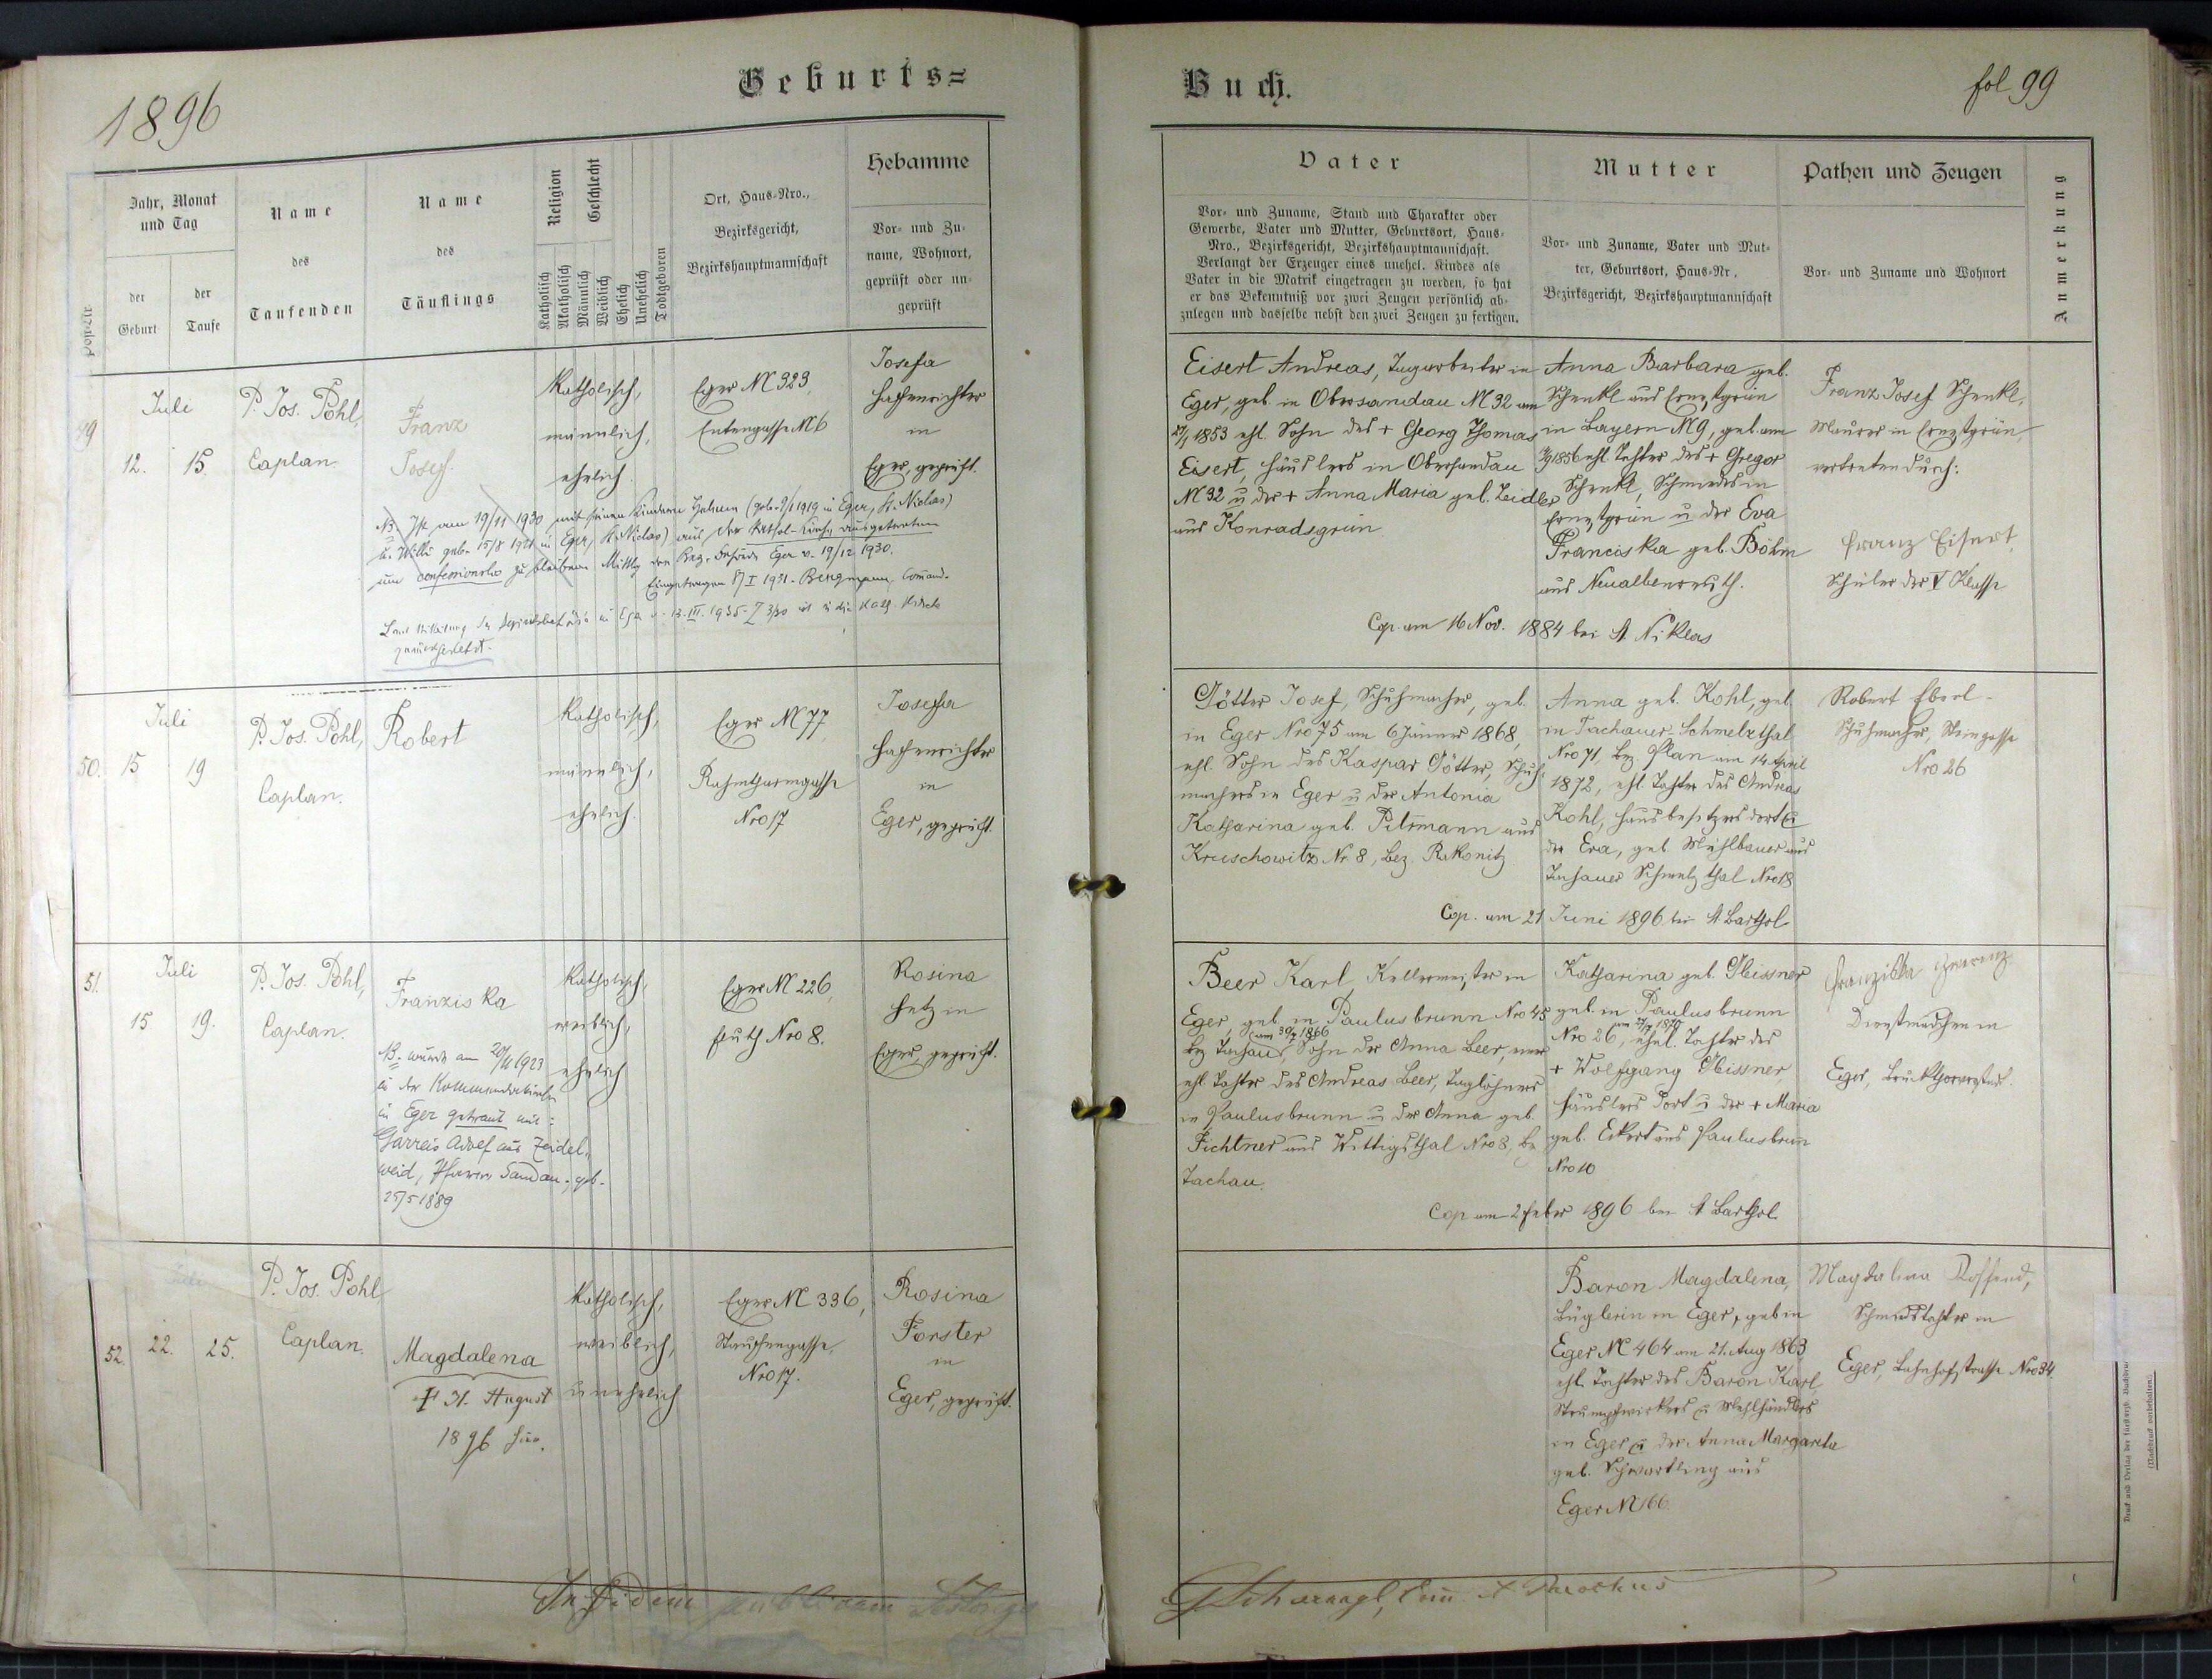 1896
Geburts=
Jahr, Monat
und Tag
der
Geburt
der
Taufe
Name
des
Taufenden
Name
des
Täuflings
Religion
Geschlecht
Katholisch
Akatholisch
Männlich
Weiblich
Ehelich
Unehelich
Todtgeboren
Ort, Haus-Nro.,
Bezirksgericht,
Bezirkshauptmannschaft
Hebamme
Vor- und Zu-
name, Wohnort,
geprüft oder un-
geprüft
49
Juli
12. 15.
P. Jos. Pohl,
Caplan.
Franz
Josef.
katholisch,
männlich,
ehelich.
Eger N 323,
Entengasse N 6
Josefa
Hafenrichter
in
Eger, geprüft.
NB. Ist am 19/11 1930 mit seinen Kindern (geb. 9/1 1919 in Eger, St. Niclas)
u. Willi geb. 15/8 1921 in Eger, St. Niclas) aus der kathol. Kirche ausgetreten
um confessionslos zu bleiben. Mittlg der Bez. Behörde Eger v. 19/12 1930.
Eingetragen 17/I 1931.
Laut Mitteilung der Bezirksbehörde in Eger v. 13.III.1935 ist in die kath. Kirche
zurückgekehrt.
50.
Juli
15 19
P. Jos. Pohl,
Caplan.
Robert
katholisch,
männlich,
ehelich.
Eger N 77,
Rahmthurmgasse
Nro 17
Josefa
Hafenrichter
in
Eger, geprüft.
51.
Juli
15 19.
P. Jos. Pohl,
Caplan.
Franziska
katholisch,
weiblich,
ehelich
Eger N 226,
Fluth Nro 8.
Rosina
Hetz in
Eger, geprüft.
NB. wurde am 1923
in der Kommendakirche
in Eger getraut mit:
Garreis Adolf aus Zeidel-
weid, Pfarre Sandau, geb.
25/5 1889
52.
22. 25.
P. Jos. Pohl
Caplan.
Magdalena
† 31. August
1896 hier.
katholisch,
weiblich,
unehelich
Eger N 336,
Nro 17.
Rosina
Forster
in
Eger, geprüft.
In fidem publicam
Buch.
fol 99
Vater
Vor- und Zuname, Stand und Charakter oder
Gewerbe, Vater und Mutter, Geburtsort, Haus-
Nro., Bezirksgericht, Bezirkshauptmannschaft.
Verlangt der Erzeuger eines unehel. Kindes als
Vater in die Matrik eingetragen zu werden, so hat
er das Bekenntniß vor zwei Zeugen persönlich ab-
zulegen und dasselbe nebst den zwei Zeugen zu fertigen.
Mutter
Vor- und Zuname, Vater und Mut-
ter, Geburtsort, Haus-Nr.,
Bezirksgericht, Bezirkshauptmannschaft
Pathen und Zeugen
Vor- und Zuname und Wohnort
Anmerkung
Eisert Andreas, Tagarbeiter in
Eger, geb. in Obersandau N 32 am
27/1 1853 ehl. Sohn des + Georg Thomas
Eisert, Häuslers in Obersandau
N 32 u der + Anna Maria geb. Zeidler
aus Konradsgrün
Anna Barbara geb.
Schenkl aus Ernestgrün
in Bayern N 9, geb. am
1856 ehl. Tochter des + Gregor
Schenkl, Schmiedes in
Ernestgrün u der Eva
Franciska geb. Böhm
aus Neualbenreuth.
Franz Josef Schenkl,
Maurer in Ernestgrün,
vertreten durch:
Franz Eisert,
Schüler der V Klasse
Cop. am 16 Nov. 1884 bei St. Niklas
Götter Josef, Schuhmacher, geb.
in Eger Nro 75 am 6 Jänner 1868,
ehl. Sohn des Kaspar Götter, Schuh-
machers in Eger u der Antonia
Katharina geb. Pilsmann aus
Kruschowitz Nr 8, Bez. Rakonitz
Anna geb. Kohl, geb.
in Tachauer-Schmelzthal
Nro 71, Bez Plan am 14 April
1872, ehl. Tochter des Andreas
Kohl, Hausbesitzers dort u
der Eva, geb. Mühlbauer aus
Tachauer Schmelzthal Nro 18
Robert Eberl
Schuhmacher, Steingasse
Nro 26
Cop. am 21 Juni 1896 bei St. Barthol
Beer Karl Kellermeister in
Eger, geb. in Paulusbrunn Nro 45
am 30/7 1866
Bez Tachau, Sohn der Anna Beer,
ehl. Tochter des Andreas Beer, Taglöhners
in Paulusbrunn u der Anna geb.
Fichtner aus Wittigsthal Nro 8, Bez
Tachau.
Katharina geb. Meissner
geb. in Paulusbrunn
Nro 26, ehel. Tochter des
+ Wolfgang Meissner,
Häuslers dort u der + Maria
geb. Eckert aus Paulusbrunn
Nro 10
Franziska
Dienstmädchen in
Eger, Bruckthorvorstadt.
Cop am 2 Feber 1896 bei St Barthol
Baron Magdalena,
Büglerin in Eger, geb in
Eger N 464 am 21. Aug 1863
ehl. Tochter des Baron Karl,
Strumpfwirkers u Mehlhändlers
in Eger u der Anna Margareta
geb. Schwartling aus
Eger N 166
Magdalena
Schmiedstochter in
Eger, Bahnhofstrasse Nro 34.
(Nachdruck vorbehalten.)